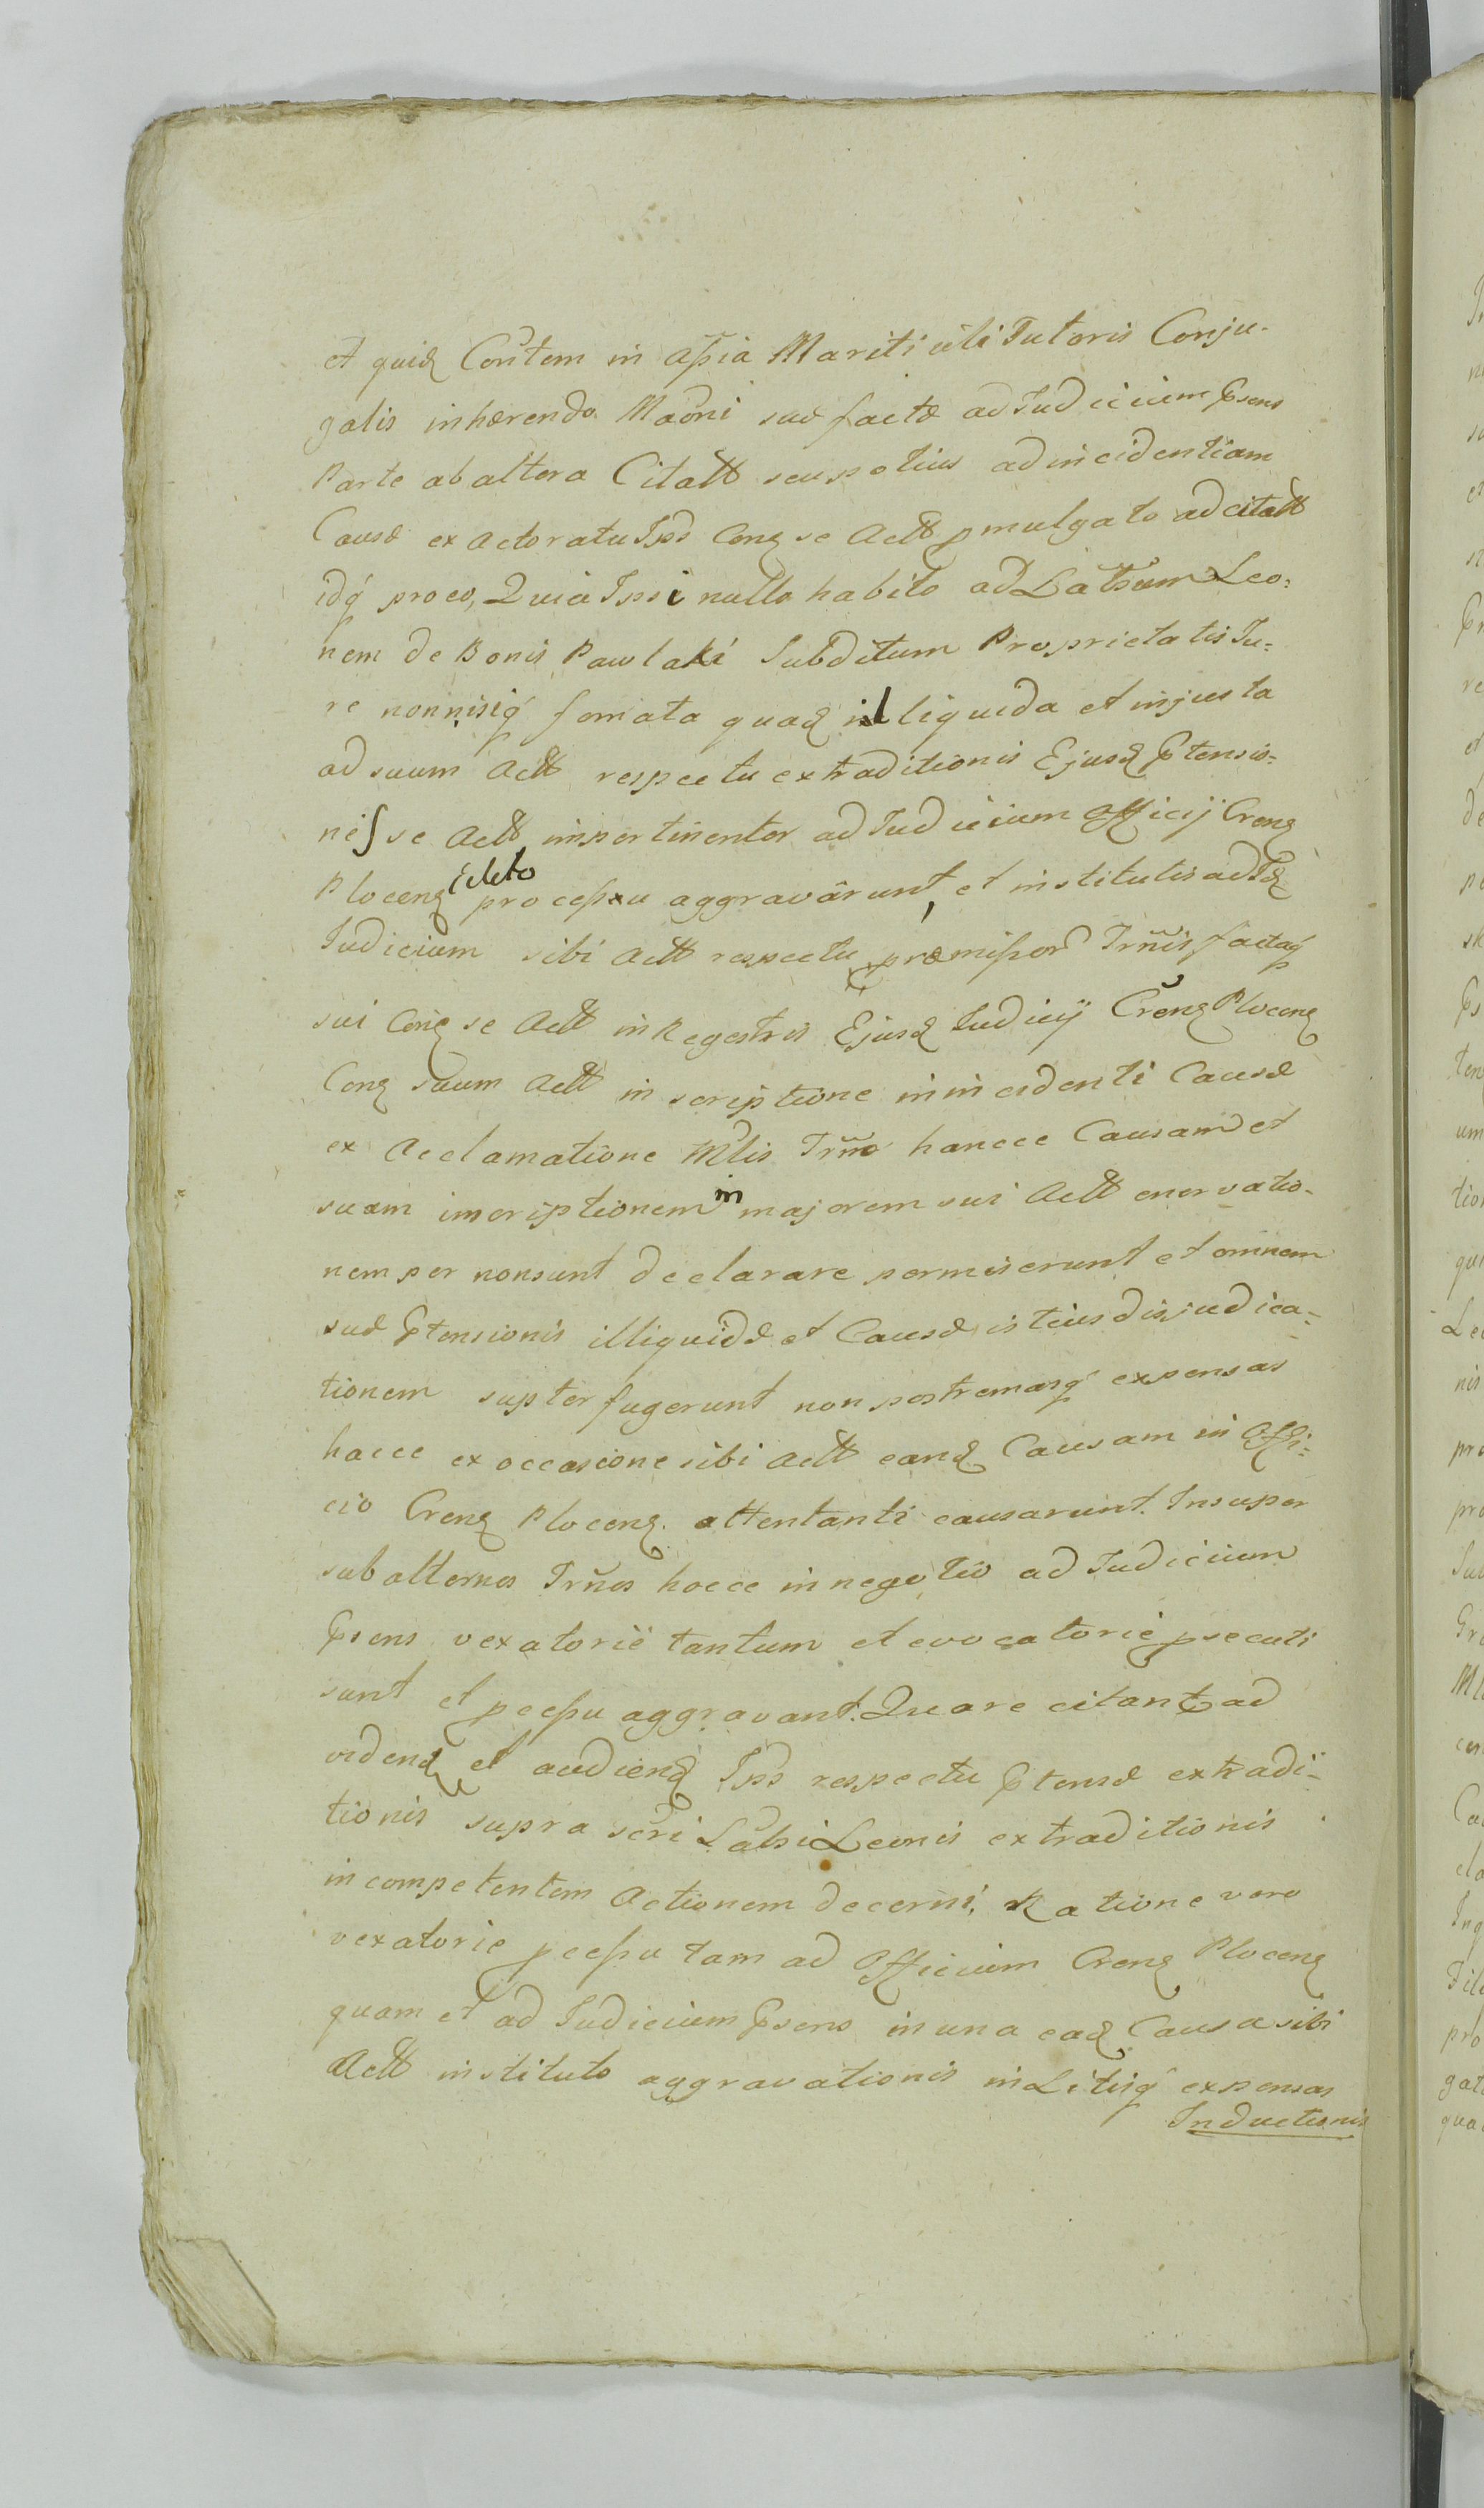 et quid Contem in assia Mariti uti Tutoris Conju-
galis inhærendo Maoni suæ factæ ad Judicium Psens
Parte ab altera Citatt seu potius ad incidentiam
Causæ ex actoratu Ips Conq se Actt pmulgato ad citatt
idq pro eo, Quia Ipsi nullo habito ad Latsum Leo=
nem de Bonis Pawlaki Subditum Proprietatis Ju=
re nonnisiq fomata quad illiquida et injusta
ad suum Actt respectu extraditionis Ejusd Ptensio=
nis se Actt impertinenter ad Judicium Officij Crens
Plocens processu aggravârunt, et institutis ad Id
Judicium sibi Actt respectu præmissor Trñis factaq
sui Conq se Actt in Regestris Ejusd Judicij Crens Plocens
Conq suum Actt inscriptione in incidenti Causæ
ex Acclamatione Mlis Trño hancce Causam et
suam inscriptionem in majorem sui Actt enervatio-
nem per non sunt declarare permiserunt et omnem
suæ Ptensionis illiquidæ et Causæ istius disjudica-
tionem supterfugerunt non postremasq expensas
hacce ex occasione sibi Actt eand Causam in Offi=
cio Crens Plocens. attentanti causarunt. Insuper
subalternos Trños hocce in negotio ad Judicium
Psens vexatorie tantum et evocatorie psecuti
sunt et pcessu aggravant. Quare citant ad
vidend et audiend Ips respectu Ptensæ extradi-
tionis supra scri Latsi Leonis extraditionis
incompetentem Actionem decerni, Ratione vero
vexatorie pcessu tam ad Officium Crens Plocens
quam et ad Judicium Psens in una ead Causa sibi
Actt instituto aggravationis in Litisq expensas
Inductionis